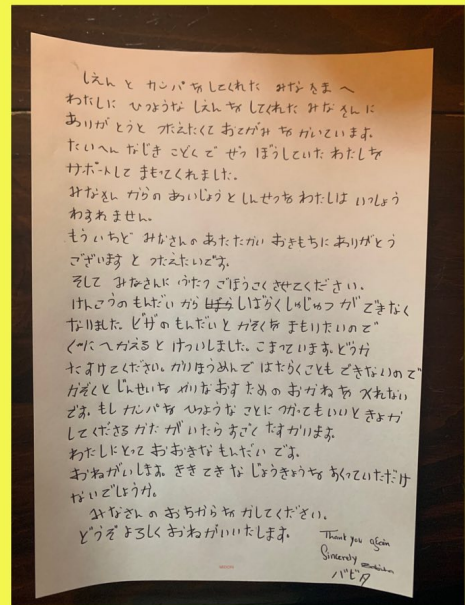 しえんと カンパをしてくれた みなさまへ
わたしに ひつような しえんをしてくれた みなさんに
ありがとうと つたえたくて おてがみを かいています。
たいへん なじき こどくで ぜつぼうしていた わたしを
サポートして まもってくれました。
みなさん からの あいじょうと しんせつを わたしは いっしょう
わすれません。
もういちど みなさんの あたたかい おきもちに ありがとう
ございますと つたえたいです。
そして みなさんに ふたつ ごほうこくさせてください。
けんこうの もんだいから しばらく しゅじゅつが できなく
なりました。ビザの もんだいと かぞくを まもりたいので
くにへかえると けついしました。こまっています。どうか
たすけてください。かりほうめんで はたらくことも できないので
かぞくと じんせいを やりなおすための おかねを つくれない
です。もし カンパを ひつような ことに つかってもいいと きょか
してくださる かたが いたら すごく たすかります。
わたしにとって おおきな もんだいです。
おねがいします。ききてきな じょうきょうを わかっていただけ
ないでしょうか。
みなさんの おちからを かしてください。
どうぞ よろしく おねがいいたします。
Thank you again
Sincerely
バビタ